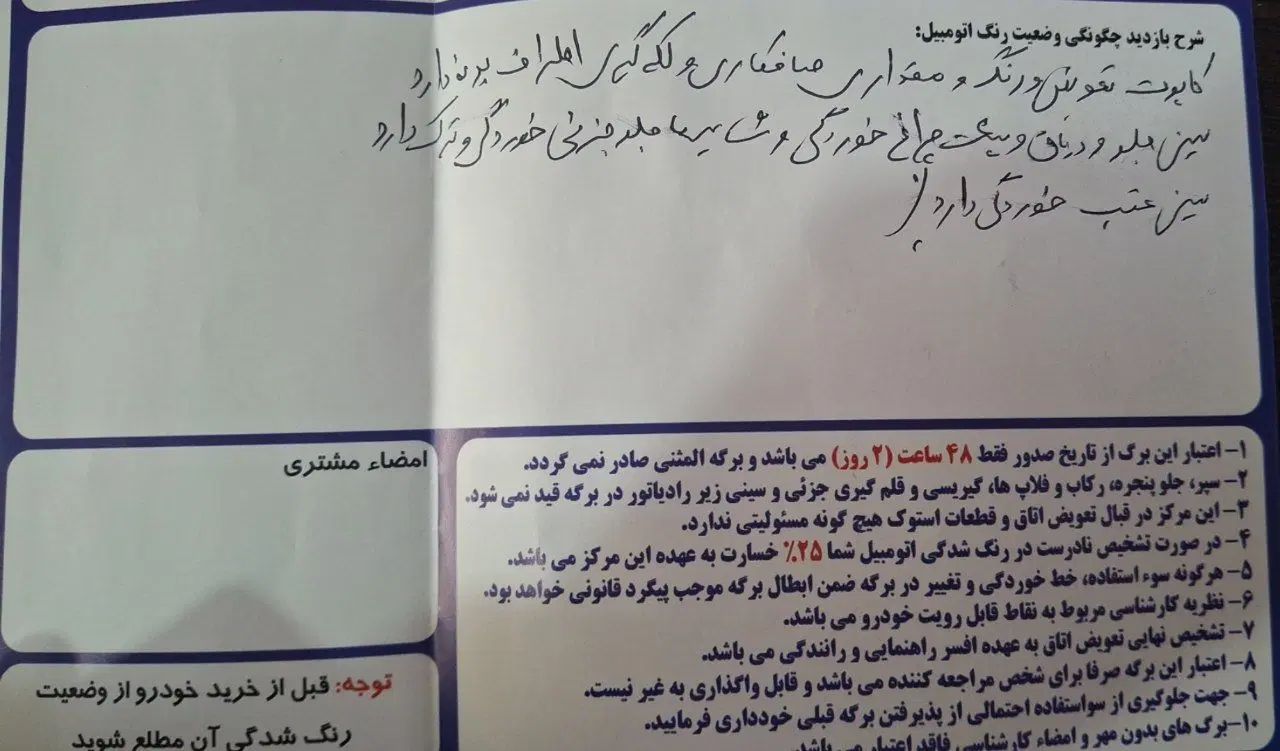 شرح بازدید چگونگی وضعیت رنگ اتومبیل:
کاپوت تعویض و رنگ و مقداری صافکاری و لکه گیری اطراف بدنه دارد
سینی جلو و دیاق و پشت چراغ خوردگی و شاسی ها جلو جزئی خوردگی و ترک دارد
سینی عقب خوردگی دارد
۱- اعتبار این برگ از تاریخ صدور فقط ۴۸ ساعت (۲ روز) می باشد و برگه المثنی صادر نمی گردد.
۲- سپر، جلو پنجره، رکاب و فلاپ ها، گیریسی و قلم گیری جزئی و سینی زیر رادیاتور در برگه قید نمی شود.
۳- این مرکز در قبال تعویض اتاق و قطعات استوک هیچ گونه مسئولیتی ندارد.
۴- در صورت تشخیص نادرست در رنگ شدگی اتومبیل شما ۲۵٪ خسارت به عهده این مرکز می باشد.
۵- هرگونه سوء استفاده، خط خوردگی و تغییر در برگه ضمن ابطال برگه موجب پیگرد قانونی خواهد بود.
۶- نظریه کارشناسی مربوط به نقاط قابل رویت خودرو می باشد.
۷- تشخیص نهایی تعویض اتاق به عهده افسر راهنمایی و رانندگی می باشد.
۸- اعتبار این برگه صرفا برای شخص مراجعه کننده می باشد و قابل واگذاری به غیر نیست.
۹- جهت جلوگیری از سواستفاده احتمالی از پذیرفتن برگه قبلی خودداری فرمایید.
۱۰- برگ های بدون مهر و امضاء کارشناسی فاقد اعتبار می باشد.
امضاء مشتری
توجه: قبل از خرید خودرو از وضعیت
رنگ شدگی آن مطلع شوید